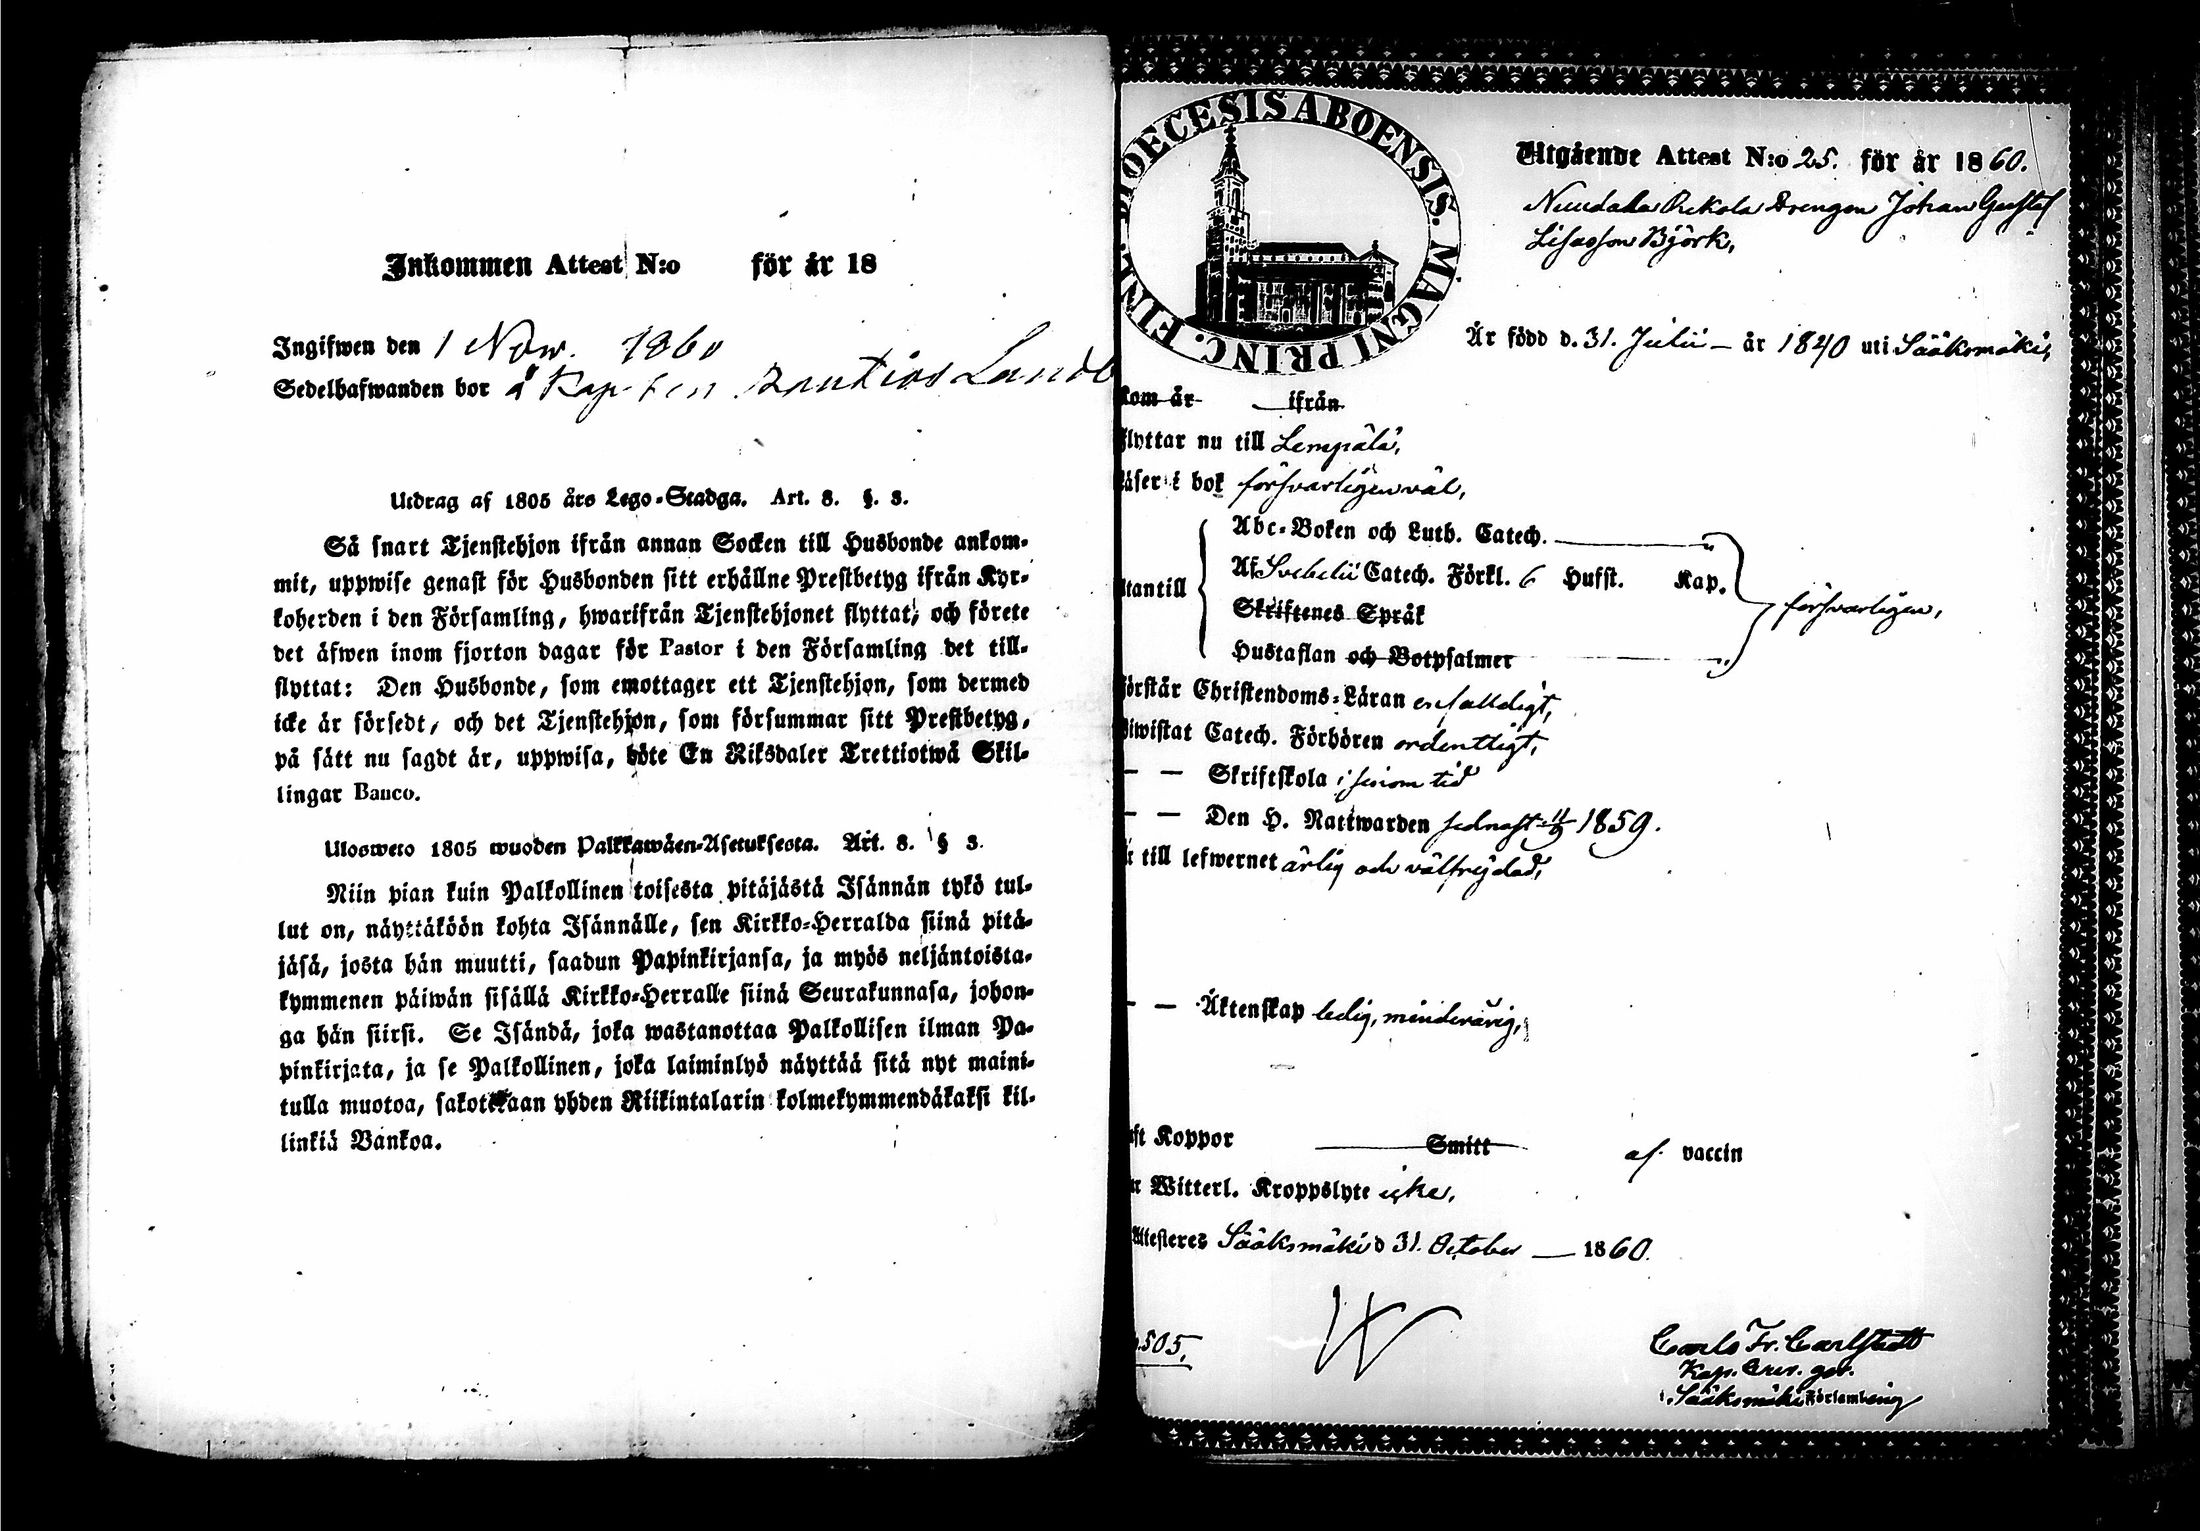 Inkommen Attest N:o för år 18
Ingifwen den 1 Now. 1860
Sedelhafwanden bor å
Utdrag af 1805 års Lego-Stadga. Art. 8. §. 3.
Så snart Tjenstehjon ifrån annan Socken till Husbonde ankom-
mit, uppwise genast för Husbonden sitt erhållne Prestbetyg ifrån Kyr-
koherden i den Församling, hwarifrån Tjenstehjonet flyttat, och förete
det äfwen inom fjorton dagar för Pastor i den Församling det till-
flyttat: Den Husbonde, som emottager ett Tjenstehjon, som dermed
icke är försedt, och det Tjenstehjon, som försummar sitt Prestbetyg,
på sätt nu sagdt är, uppwisa, böte En Riksdaler Trettiotwå Skil-
lingar Banco.
Ulosweto 1805 wuoden Palkkawäen-Asetuksesta. Art. 8. § 3.
Niin pian kuin Palkollinen toisesta pitäjästä Isännän tykö tul-
lut on, näyttäköön kohta Isännälle, sen Kirkko-Herralda siinä pitä-
jäsä, josta hän muutti, saadun Papinkirjansa, ja myös neljäntoista-
kymmenen päiwän sisällä Kirkko-Herralle siinä Seurakunnasa, johon-
ga hän siirsi. Se Isändä, joka wastanottaa Palkollisen ilman Pa-
pinkirjata, ja se Palkollinen, joka laiminlyö näyttää sitä nyt maini-
tulla muotoa, sakotetaan yhden Riikintalarin kolmekymmendäkaksi kil-
linkiä Bankoa.
DIOECESIS ABOENSIS. MAGNI PRINC. FINL.
Utgående Attest N:o 25. för år 1860.
Drengen Johan Gustaf
Björk,
Är född d. 31. Julii – år 1840 uti Sääksmäki,
kom år ifrån
flyttar nu till Lempälä,
läser i bok försvarligen väl,
utantill
Abc-Boken och Luth. Catech.
Af Svebelii Catech. Förkl. 6 Hufst. Kap.
Skriftenes Språk
Hustaflan och Botpsalmer
försvarligen,
förstår Christendoms-Läran enfalldigt,
biwistat Catech. Förhören ordentligt,
— — Skriftskola i sinom tid
— — Den H. Nattwarden sednast 11/9 1859.
är till lefwernet ärlig och välfrejdad,
— — Äktenskap ledig, minderårig,
haft Koppor Smitt af vaccin
Witterl. Kroppslyte icke,
Attesteres Sääksmäki d 31. October — 1860.
505.
Carl Fr. Carlstedt
Kap.
i Sääksmäki Församling